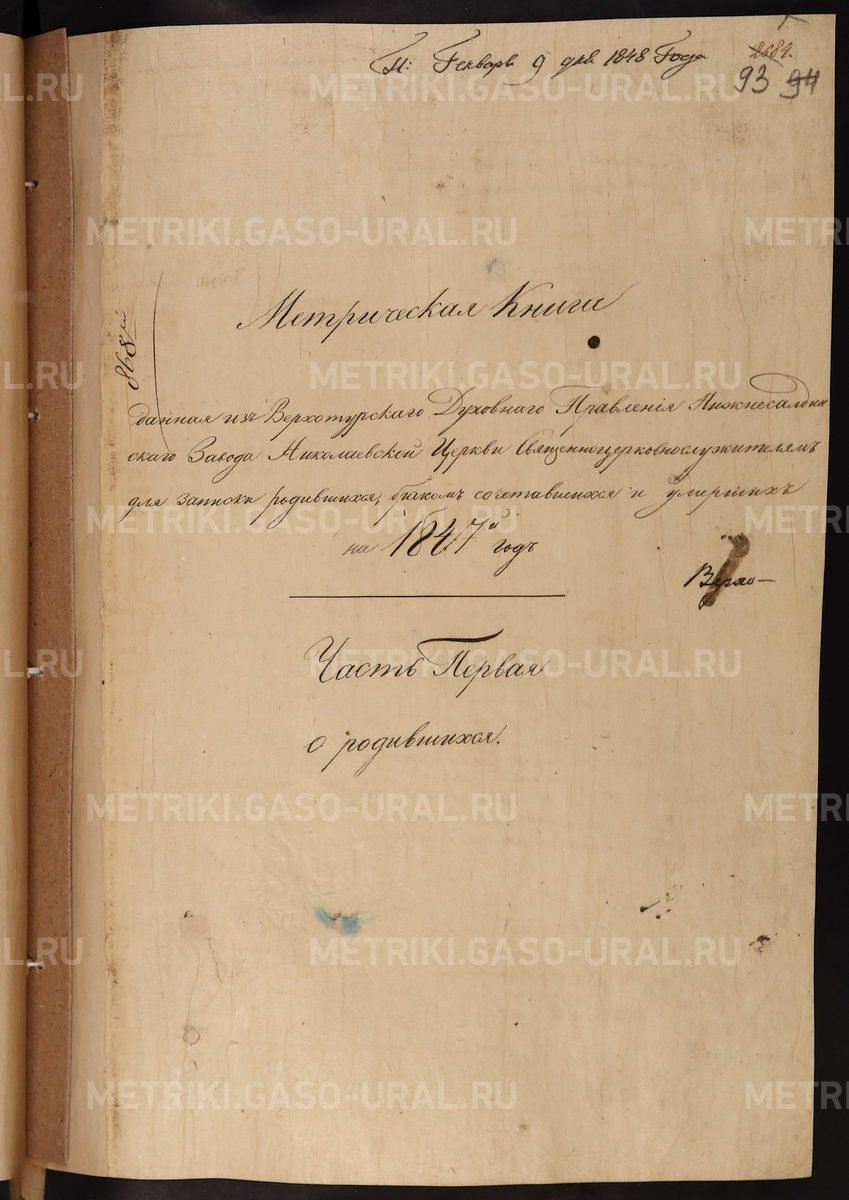 П: Генваря 9 дня 1848 Года
2684.
93 94
Метрическая Книга
868й
данная изъ Верхотурскаго Духовнаго Правленія Нижнесалдин
скаго Завода Николаевской Церкви Священноцерковнослужителямъ
для записки родившихся, бракомъ сочетавшихся и умершихъ
на 1847й годъ
Верхо-
Часть Первая
о родившихся.
METRIKI.GASO-URAL.RU